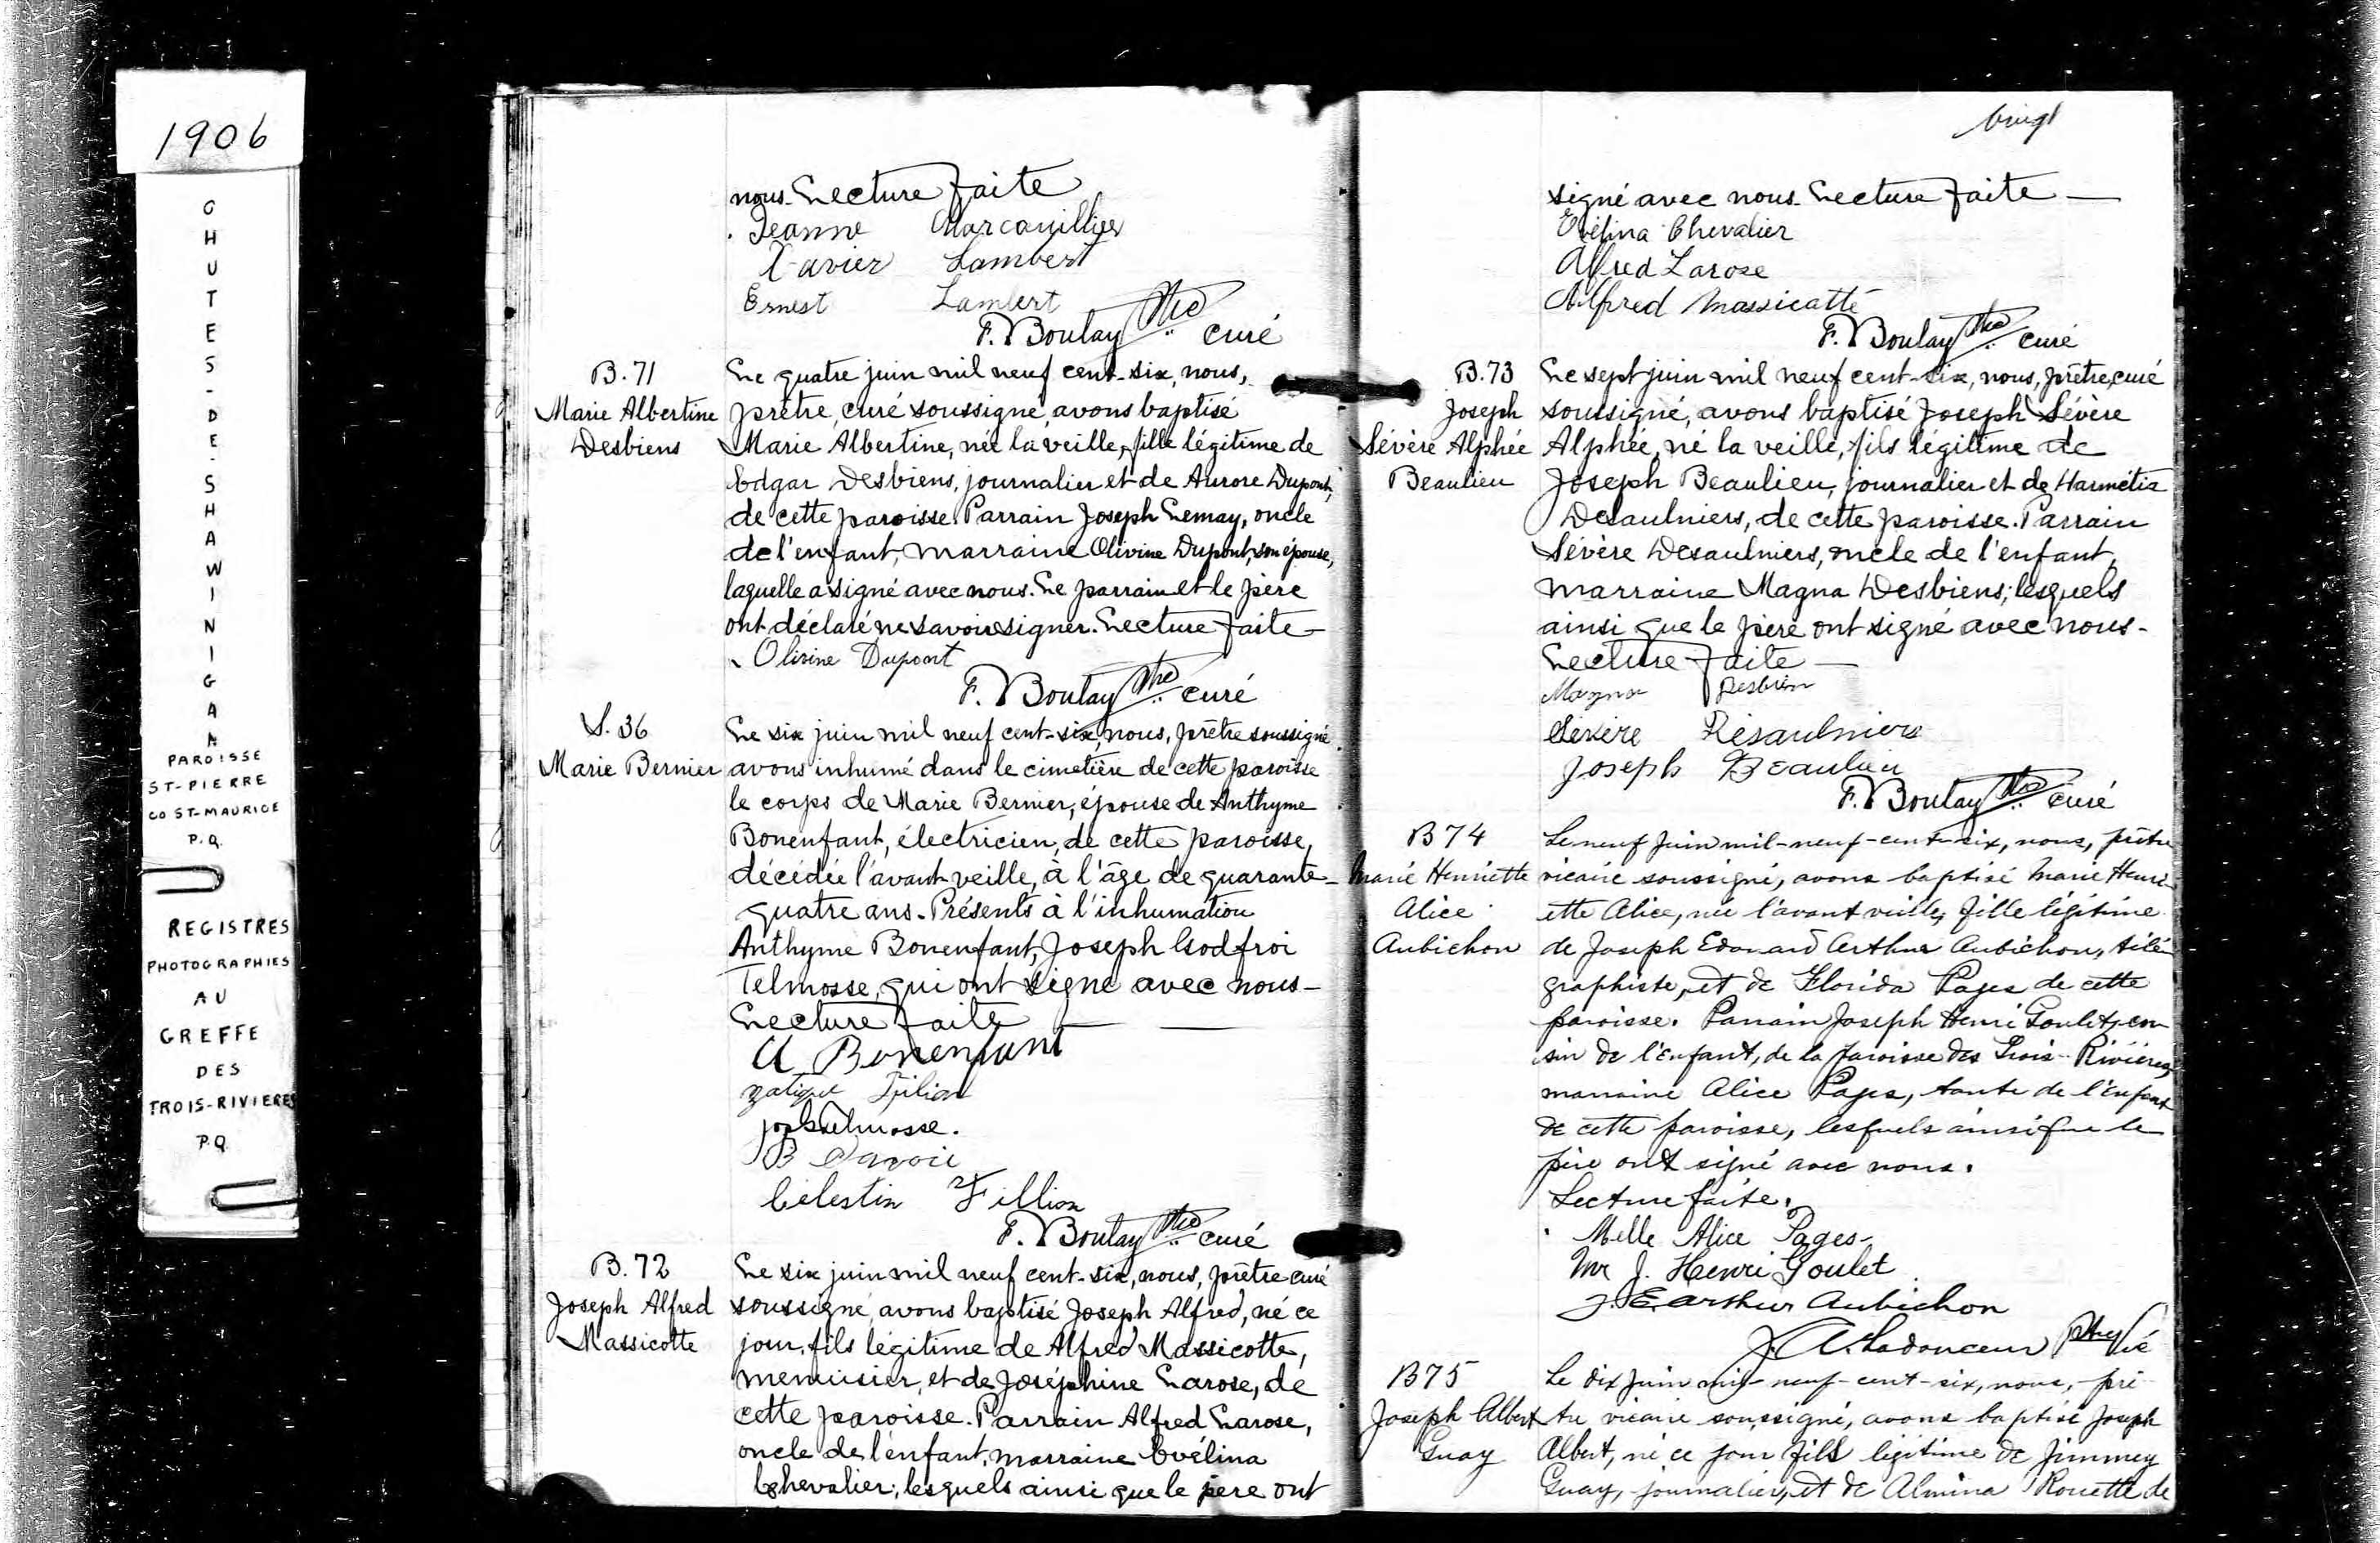 1906
CHUTES-DE SHAWINIGAN
PAROISSE
ST-PIERRE
CO ST-MAURICE
P.Q.
REGISTRES
PHOTOGRAPHIES
AU
GREFFE
DES
TROIS-RIVIERES
P.Q.
nous. Lecture faite
Jeanne Marcouillier
Xavier Lambert
Ernest Lambert
F. Boulay Ptre curé
B. 71
Marie Albertine
Desbiens
Le quatre juin mil neuf cent-six, nous,
prêtre, curé soussigné, avons baptisé
Marie Albertine, née la veille, fille légitime de
Edgar Desbiens, journalier et de Aurore Dupont,
de cette paroisse. Parrain Joseph Lemay, oncle
de l'enfant, marraine Olivine Dupont, son épouse,
laquelle a signé avec nous. Le parrain et le père
ont déclaré ne savoir signer. Lecture faite-
Olivine Dupont
F. Boulay Ptre curé
S. 36
Marie Bernier
Le six juin mil neuf cent-six, nous, prêtre soussigné
avons inhumé dans le cimetière de cette paroisse
le corps de Marie Bernier, épouse de Anthyme
Bonenfant, électricien, de cette paroisse,
décédée l'avant veille, à l'âge de quarante-
quatre ans. Présents à l'inhumation
Anthyme Bonenfant, Joseph Godfroi
Telmosse, qui ont signé avec nous-
Lecture faite
A Bonenfant
Filion
Jos G Telmosse.
B Savoie
Célestin Fillion
F. Boulay Ptre curé
B. 72
Joseph Alfred
Massicotte
Le six juin mil neuf cent-six, nous, prêtre curé
soussigné, avons baptisé Joseph Alfred, né ce
jour, fils légitime de Alfred Massicotte,
menuisier, et de Joséphine Larose, de
cette paroisse. Parrain Alfred Larose,
oncle de l'enfant, marraine Evélina
Chevalier, lesquels ainsi que le père ont
vingt
signé avec nous. Lecture faite —
Evélina Chevalier
Alfred Larose
Alfred Massicatte
F. Boulay Ptre curé
B. 73
Joseph
Sévère Alphée
Beaulieu
Le sept juin mil neuf cent-six, nous, prêtre, curé
soussigné, avons baptisé Joseph Sévère
Alphée, né la veille, fils légitime de
Joseph Beaulieu, journalier et de Harmétis
Desaulniers, de cette paroisse. Parrain
Sévère Desaulniers, oncle de l'enfant,
marraine Magna Desbiens; lesquels
ainsi que le père ont signé avec nous-
Lecture faite —
Magna Desbien
Sévère Désaulniers
Joseph Beaulieu
F. Boulay Ptre curé
B 74
Marie Henriette
Alice
Aubichon
Le neuf Juin mil-neuf-cent-six, nous, prêtre
vicaire soussigné, avons baptisé Marie Henri-
ette Alice, née l'avant veille, fille légitime
de Joseph Edouard Arthur Aubichon, télé-
graphiste, et de Florida Pages de cette
paroisse. Parrain Joseph Henri Goulet, cou-
sin de l'Enfant, de la paroisse des Trois-Rivières,
marraine Alice Pages, tante de l'Enfant
de cette paroisse, lesquels ainsi que le
père ont signé avec nous.
Lecture faite.
Melle Alice Pages-
Mr J. Henri Goulet
J. E. Arthur Aubichon
J. A. Ladouceur Ptre Vic
B 75
Joseph Albert
Guay
Le dix Juin mil-neuf-cent-six, nous, prê-
tre vicaire soussigné, avons baptisé Joseph
Albert, né ce jour fils légitime de Jimmey
Guay, journalier, et de Almina Rouette de